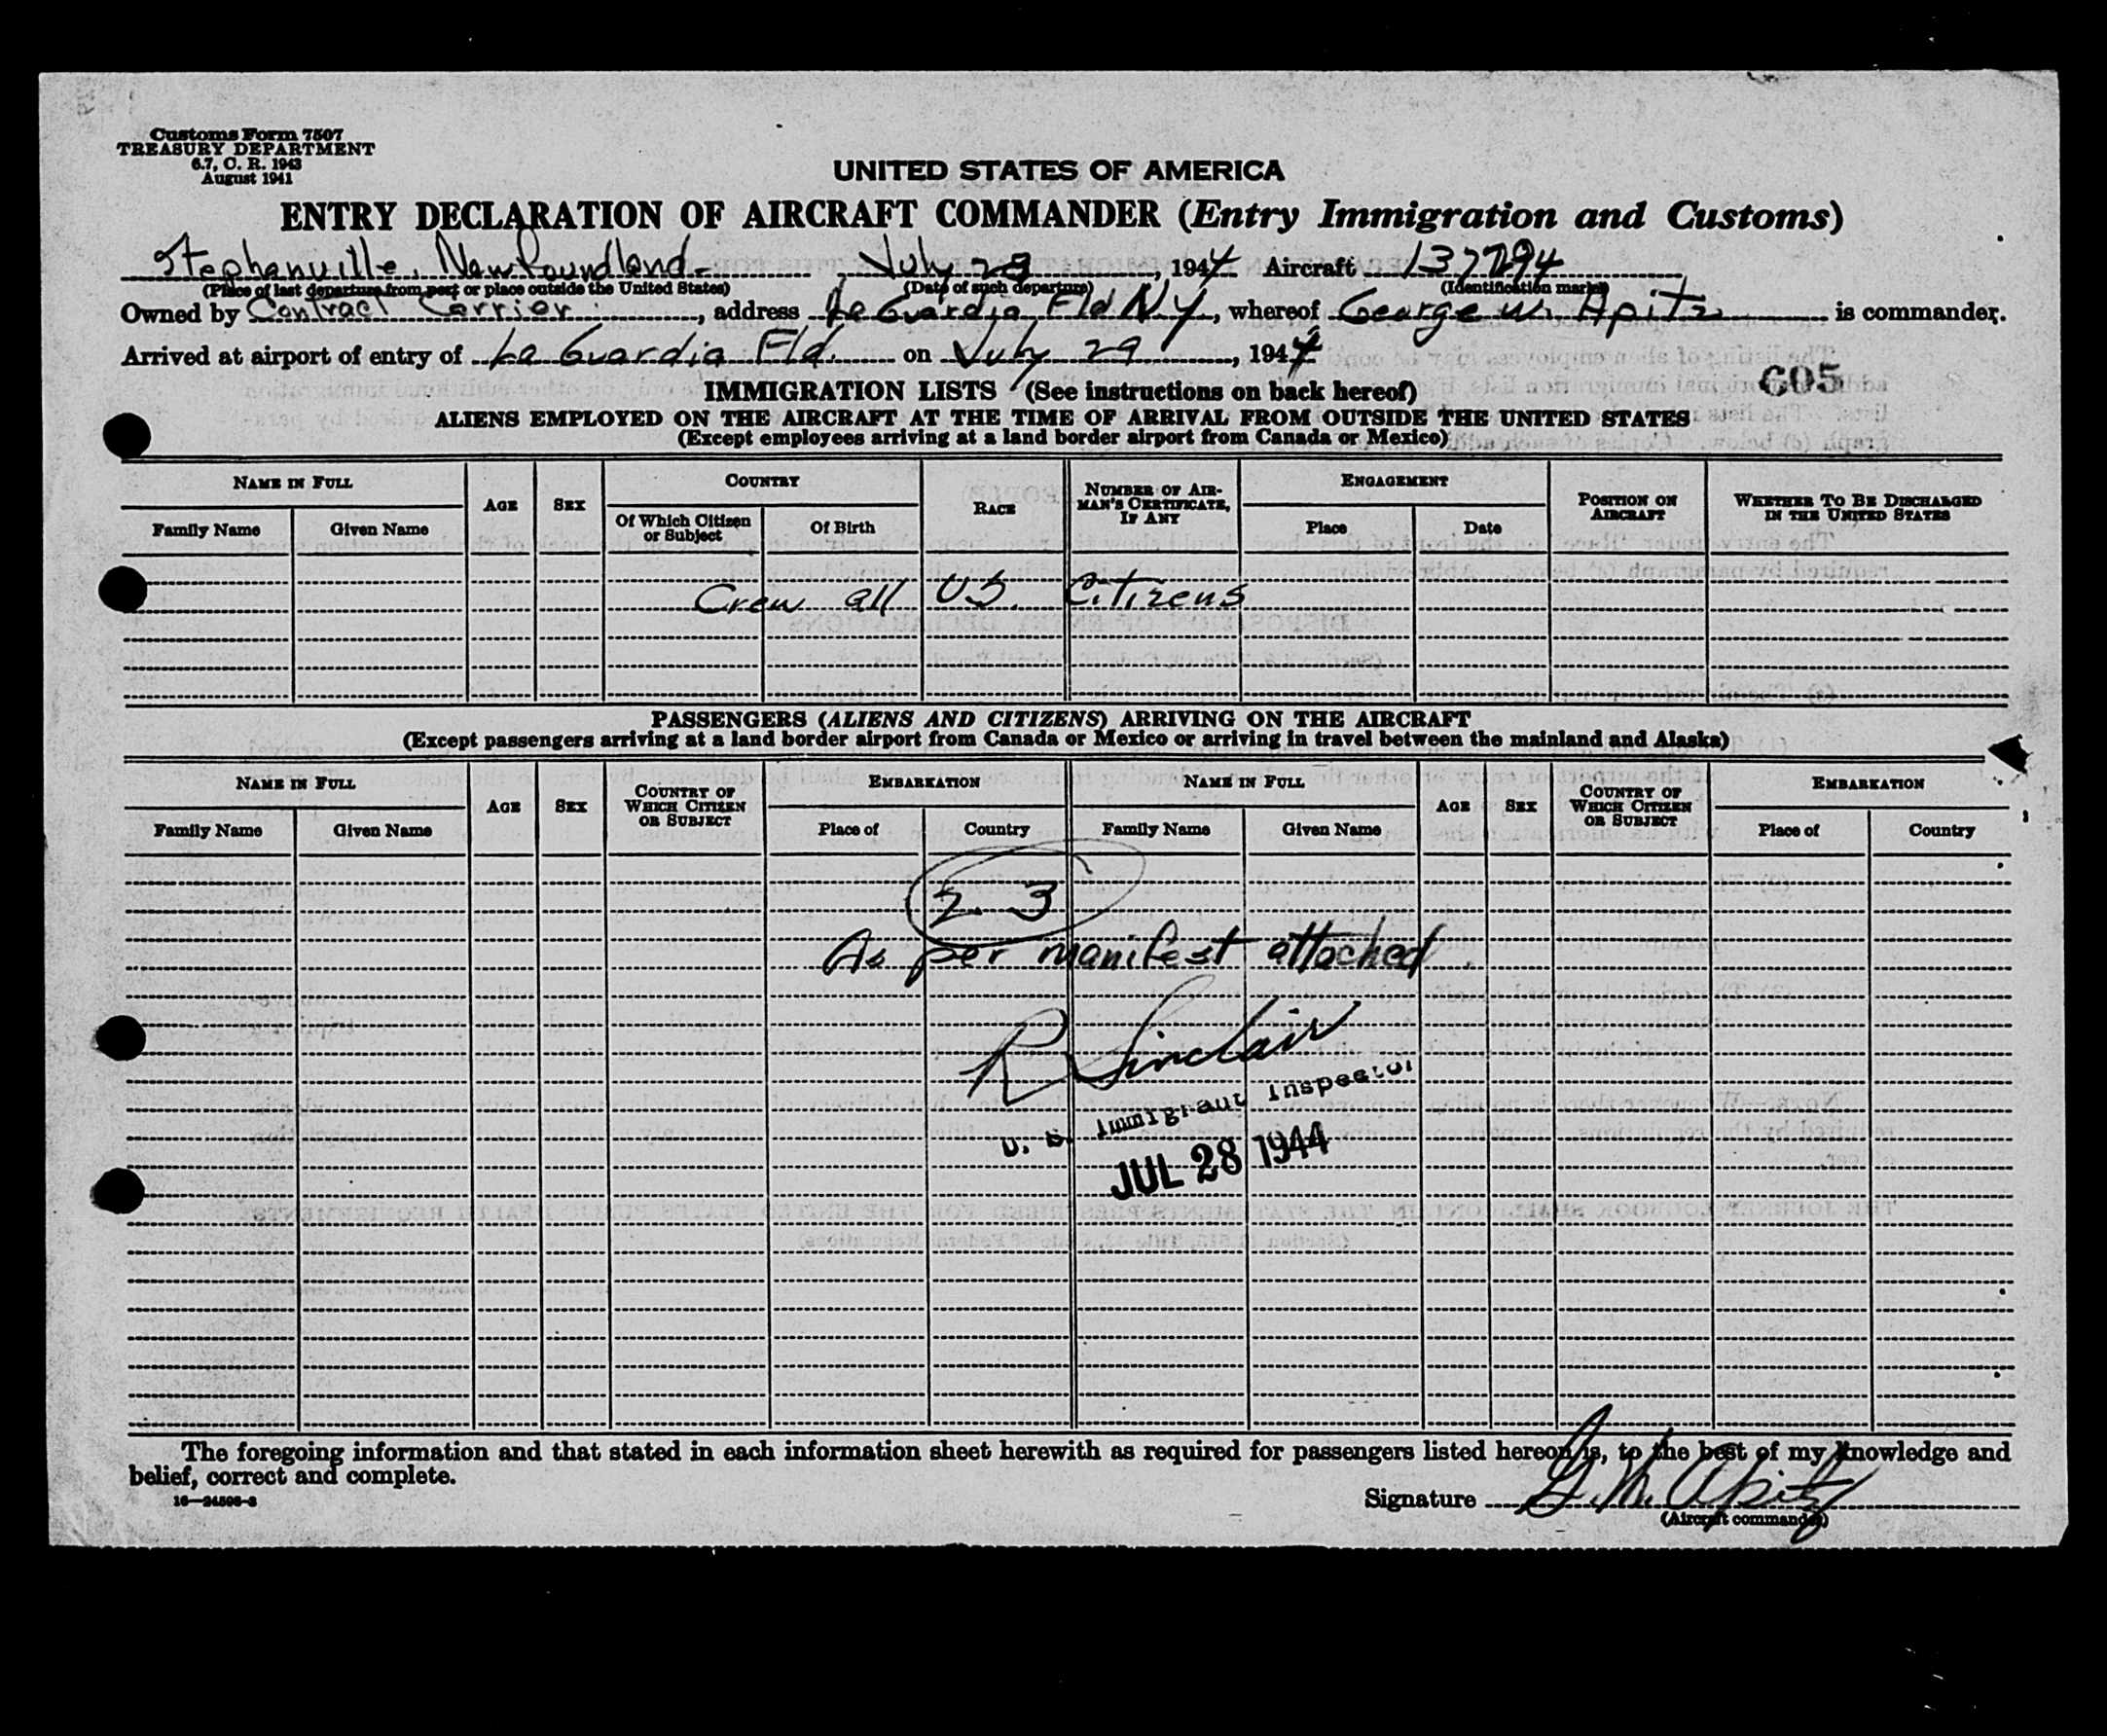 Customs Form 7507
TREASURY DEPARTMENT
6.7, C. R. 1943
August 1941
UNITED STATES OF AMERICA
ENTRY DECLARATION OF AIRCRAFT COMMANDER (Entry Immigration and Customs)
Stephanville, Newfoundland, July 28, 1944 Aircraft 137794
(Place of last departure from port or place outside the United States) (Date of such departure) (Identification marks)
Owned by Contract Carrier, address La Guardia Fld NY, whereof George W. Apitz is commander.
Arrived at airport of entry of La Guardia Fld. on July 29, 1944
605
IMMIGRATION LISTS (See instructions on back hereof)
ALIENS EMPLOYED ON THE AIRCRAFT AT THE TIME OF ARRIVAL FROM OUTSIDE THE UNITED STATES
(Except employees arriving at a land border airport from Canada or Mexico)
NAME IN FULL AGE SEX COUNTRY RACE NUMBER OF AIRMAN'S CERTIFICATE, IF ANY ENGAGEMENT POSITION ON AIRCRAFT WHETHER TO BE DISCHARGED IN THE UNITED STATES
Family Name Given Name Of Which Citizen or Subject Of Birth Place Date
Crew all US. Citizens
PASSENGERS (ALIENS AND CITIZENS) ARRIVING ON THE AIRCRAFT
(Except passengers arriving at a land border airport from Canada or Mexico or arriving in travel between the mainland and Alaska)
NAME IN FULL AGE SEX COUNTRY OF WHICH CITIZEN OR SUBJECT EMBARKATION NAME IN FULL AGE SEX COUNTRY OF WHICH CITIZEN OR SUBJECT EMBARKATION
Family Name Given Name Place of Country Family Name Given Name Place of Country
23
As per manifest attached
R Sinclair
U. S. Immigrant Inspector
JUL 28 1944
The foregoing information and that stated in each information sheet herewith as required for passengers listed hereon is, to the best of my knowledge and
belief, correct and complete.
16—24596-3
Signature G. W. Apitz
(Aircraft commander)